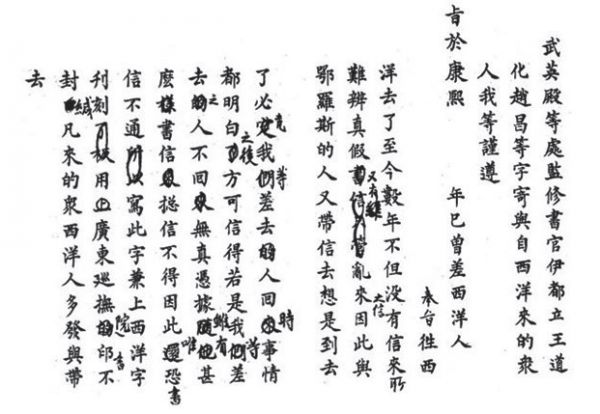 武英殿等處監修書官伊都立王道
化趙昌等字寄與自西洋來的衆
人我等謹遵
旨於康熙 年已曾差西洋人
奉旨徃西
洋去了至今數年不但没有信來所
難辨真假又有亂來之信因此與
鄂羅斯的人又帶信去想是到去
了必我等差去人回時事情
都明白之後方可信得若是我等差
去之人不回無真憑據雖有甚
麽書信総信不得因此唯恐書
信不通寫此字兼上西洋字
刊刻用廣東廵撫院印書不
封緘凡來的衆西洋人多發與帶
去